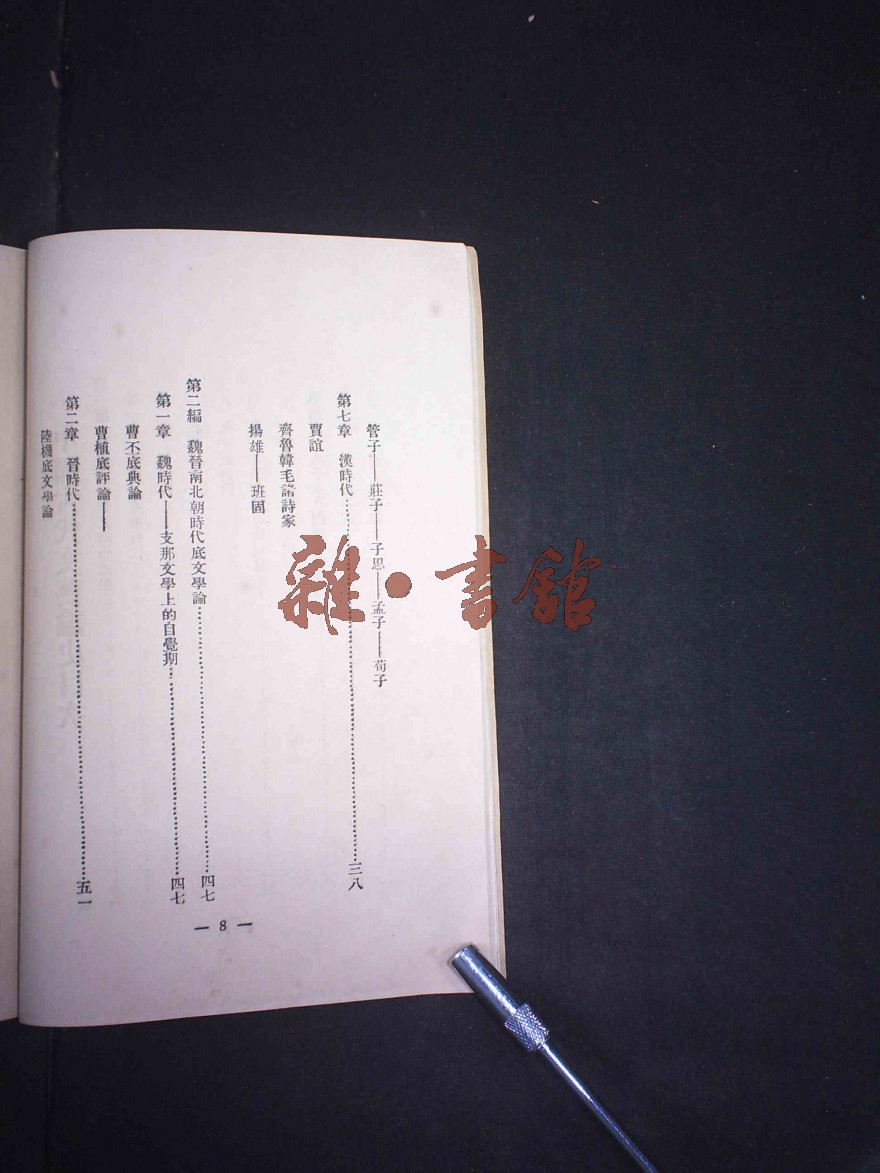 管子——莊子——子思——孟子——荀子
第七章 漢時代……三八
賈誼
齊魯韓毛諸詩家
揚雄——班固
第二編 魏晉南北朝時代底文學論……四七
第一章 魏時代——支那文學上的自覺期……四七
曹丕底典論
曹植底評論——
第二章 晉時代……五一
陸機底文學論
— 8 —
雜·書館